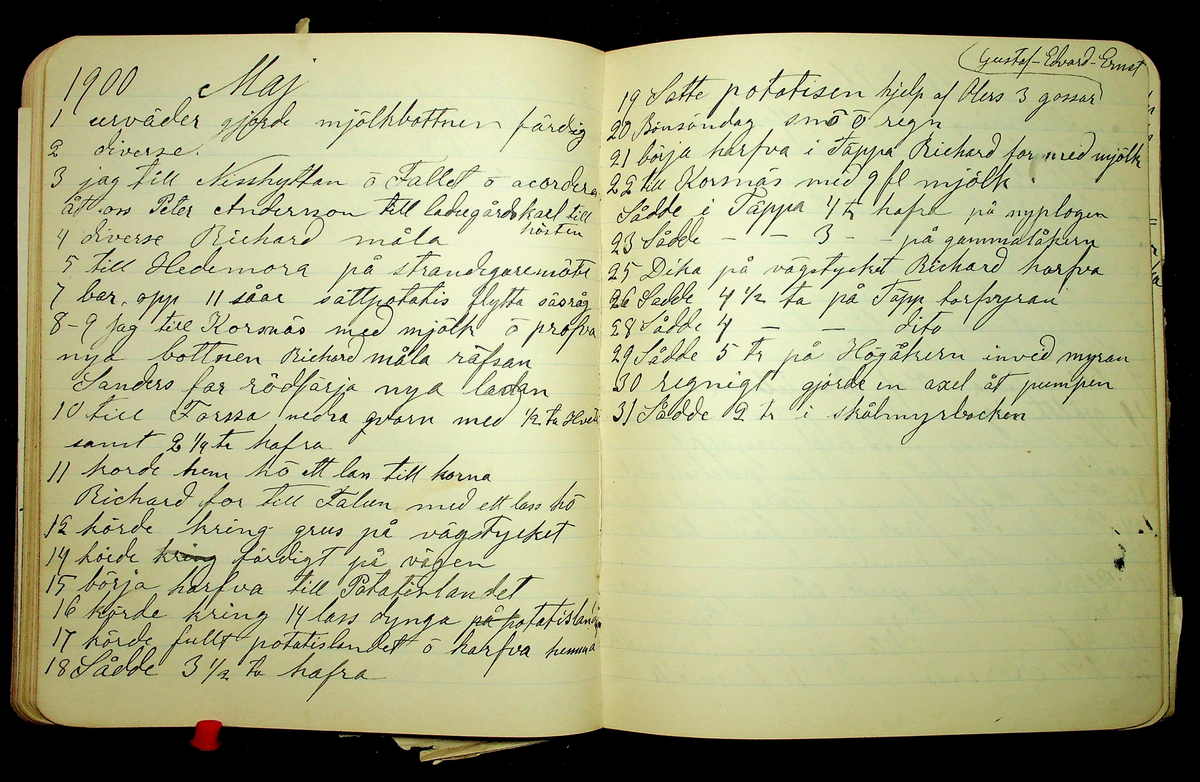 1900 Maj
1 urväder gjorde mjölkbottnen färdig
2 diverse.
3 jag till Nisshyttan ö Fallet ö acordera
åt oss Peter Andersson till ladugårdskarl till
hösten
4 diverse Richard måla
5 till Hedemora på strandegaremöte
7 bar opp 11 såar sättpotatis flytta såsråg
8-9 jag till Korsnäs med mjölk ö pröfva
nya bottnen Richard måla räfsan
Sanders far rödfärja nya ladan
10 till Forssa nedra qvarn med 1/2 ta Hvete
samt 2 1/4 tr hafra
11 körde hem hö ett las till korna
Richard for till Falun med ett lass hö
12 körde kring grus på vägstycket
14 körde kring färdigt på vägen
15 börja harfva till Potatislandet
16 körde kring 14 lass dynga på potatislandet
17 körde fullt potatislandet ö harfva hemma
18 Sådde 3 1/2 ta hafra
(Gustaf-Edvard-Ernst
19 Satte potatisen hjelp af Olers 3 gossar)
20 Bönsöndag snö ö regn
21 börja harfva i Täppa Richard for med mjölk
22 till Korsnäs med 9 fl mjölk
Sådde i Täppa 4 tr hafra på nyplogen
23 Sådde - - 3 - - på gammalåkern
25 Dika på vägstycket Richard harfva
26 Sådde 4 1/2 ta på Täpp torfvyran
28 Sådde 4 - - dito
29 Sådde 5 tr på Högåkern invid myran
30 regnigt gjorde en axel åt pumpen
31 Sådde 2 tr i skålmyrbacken